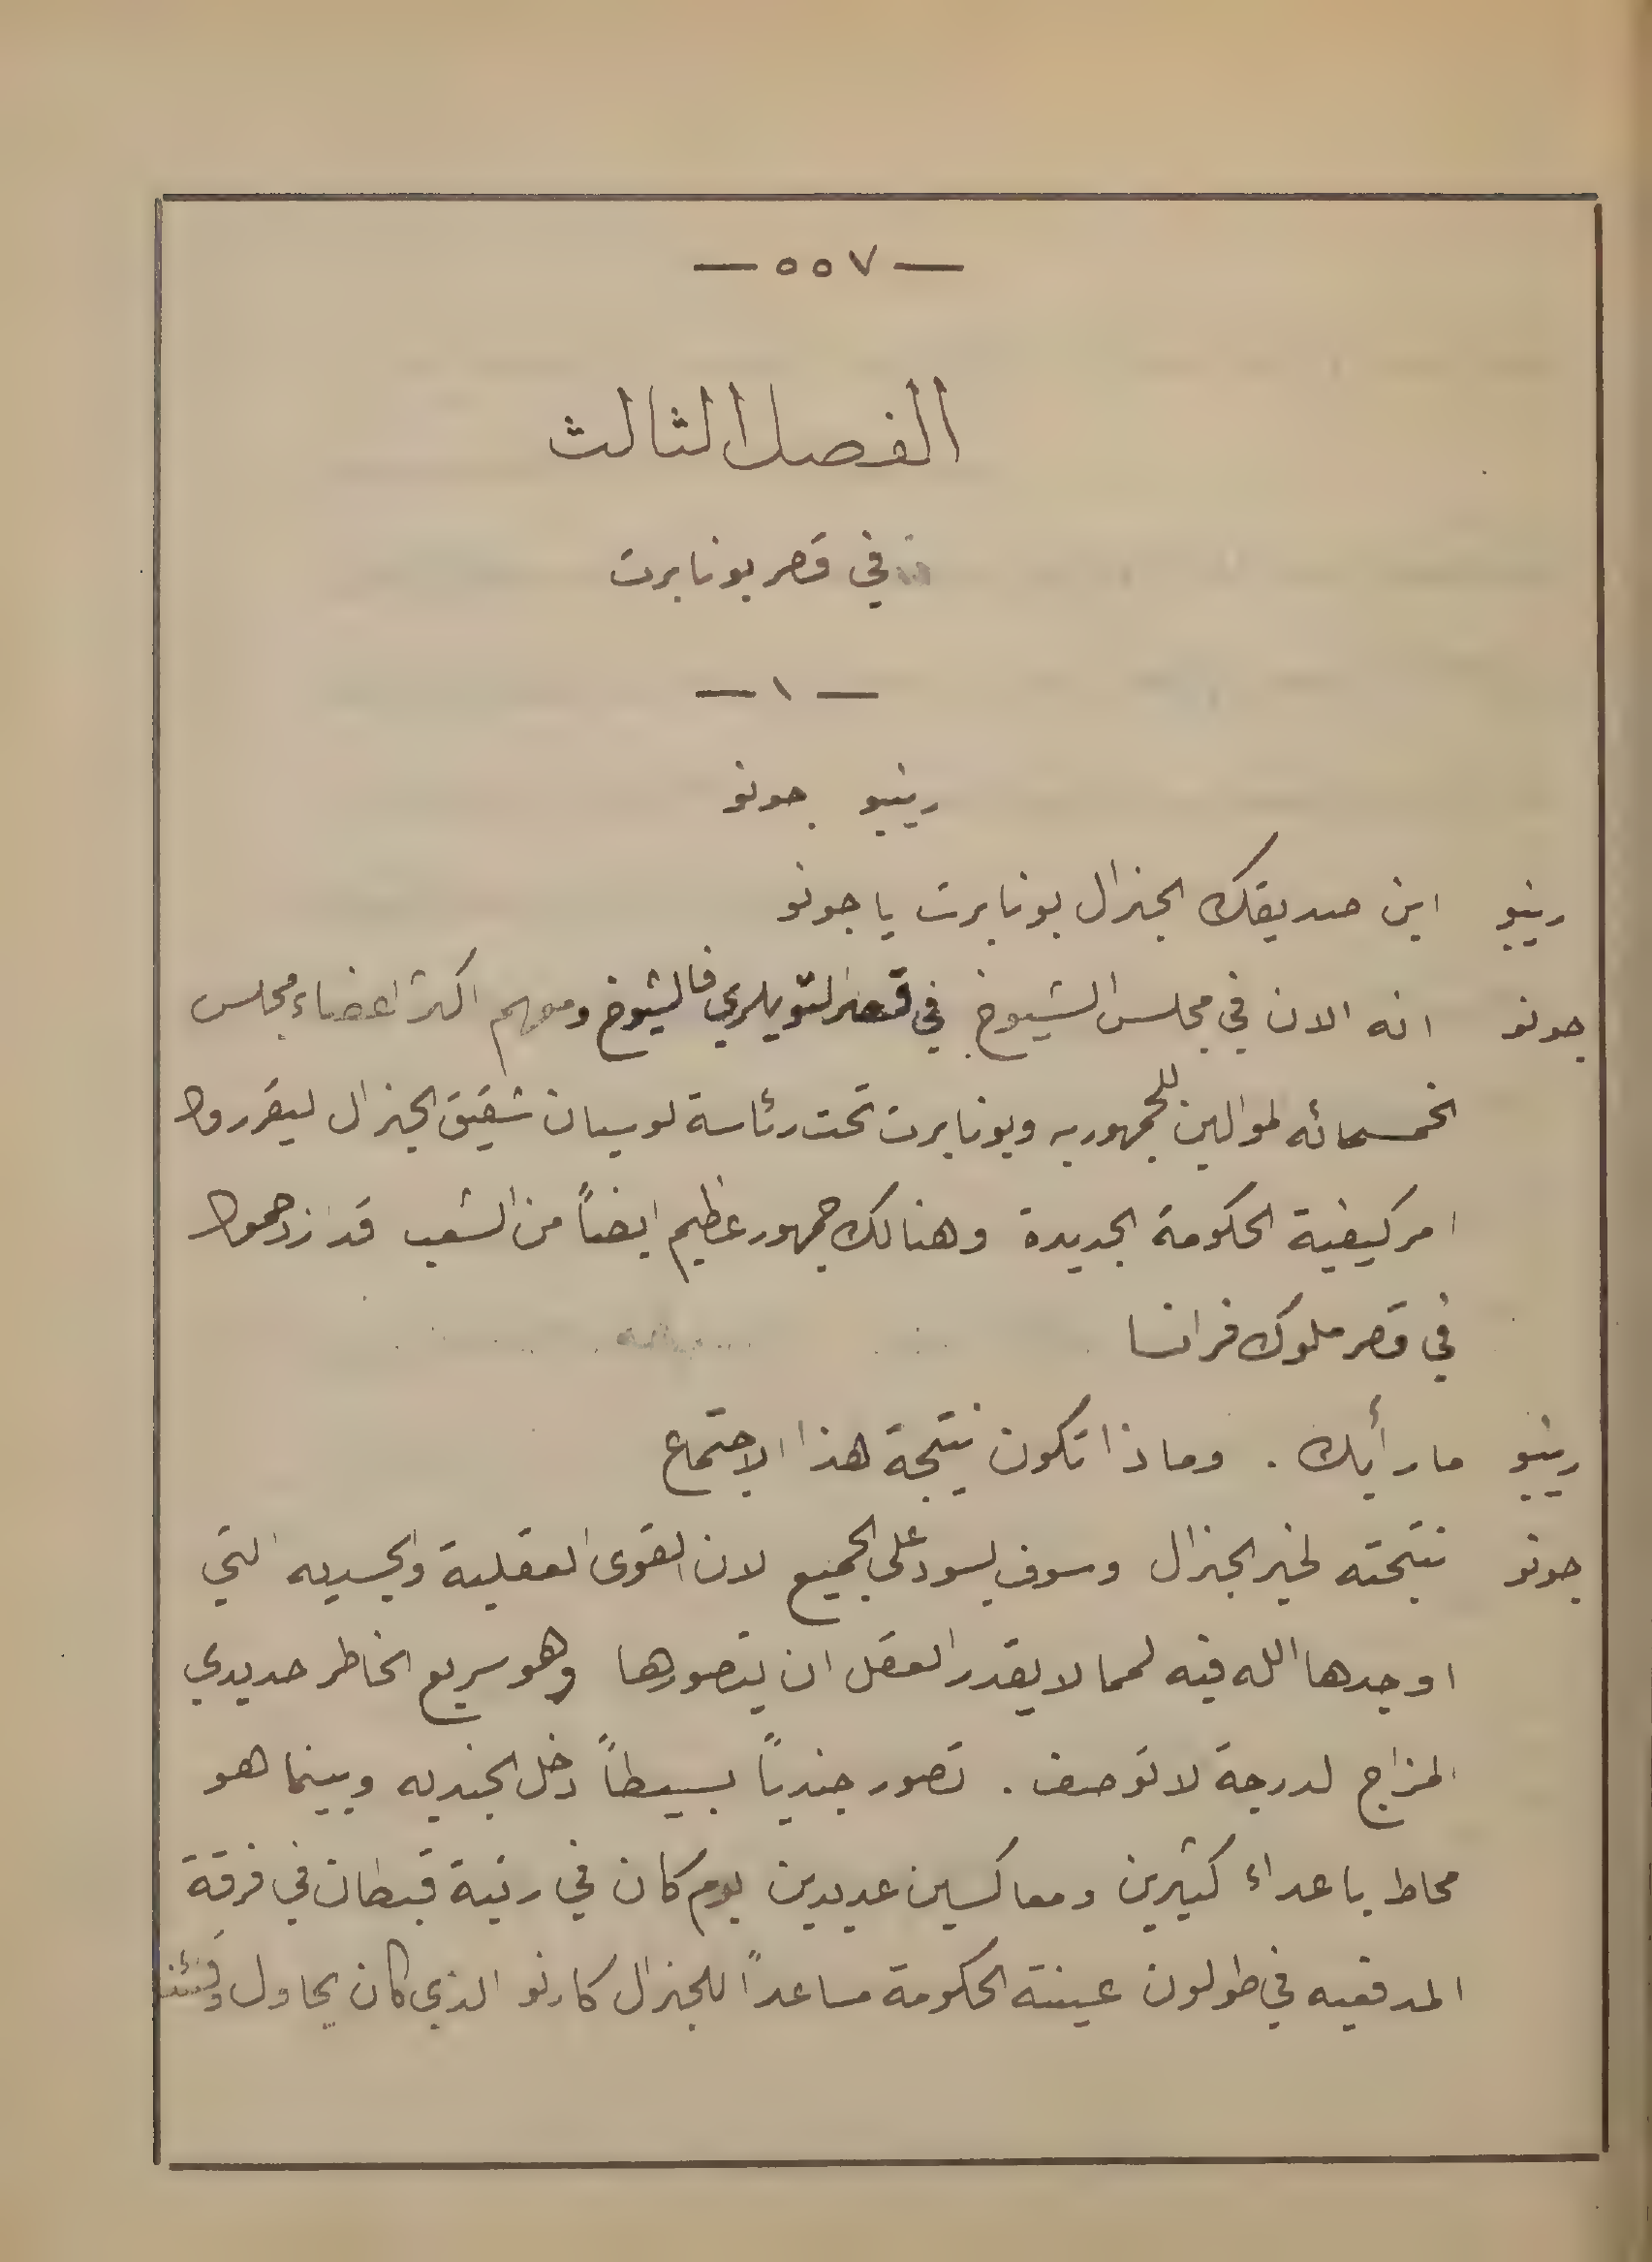 — ٥٥٧ —
الفصل الثالث
في قصر بونابرت
— ١ —
رينيو جونو
رينيو اين صديقك الجنرال بونابرت يا جونو
جونو انه الان في مجلس الشيوخ في قصر التويلري فالشيوخ ومعهم اكثر اعضاء مجلس
الخمسمائه الموالين للجمهوريه وبونابرت تحت رئاسة لوسيان شقيق الجنرال ليقرروا
امر كيفية الحكومة الجديدة وهنالك جمهور عظيم ايضاً من الشعب قد ازدحموا
في قصر ملوك فرانسا
رينيو ما رأيك . وماذا تكون نتيجة هذا الاجتماع
جونو نتيجته لخير الجنرال وسوف يسود على الجميع لان القوى العقلية والجسديه التي
اوجدها الله فيه لمما لا يقدر العقل ان يتصورها وهو سريع الخاطر حديدي
المزاج لدرجة لا توصف . تصور جندياً بسيطاً دخل الجنديه وبينما هو
محاط باعداء كثيرين ومعاكسين عديدين يوم كان في رتبة قبطان في فرقة
المدفعيه في طولون عينته الحكومة مساعداً للجنرال كارتو الذي كان يحاول